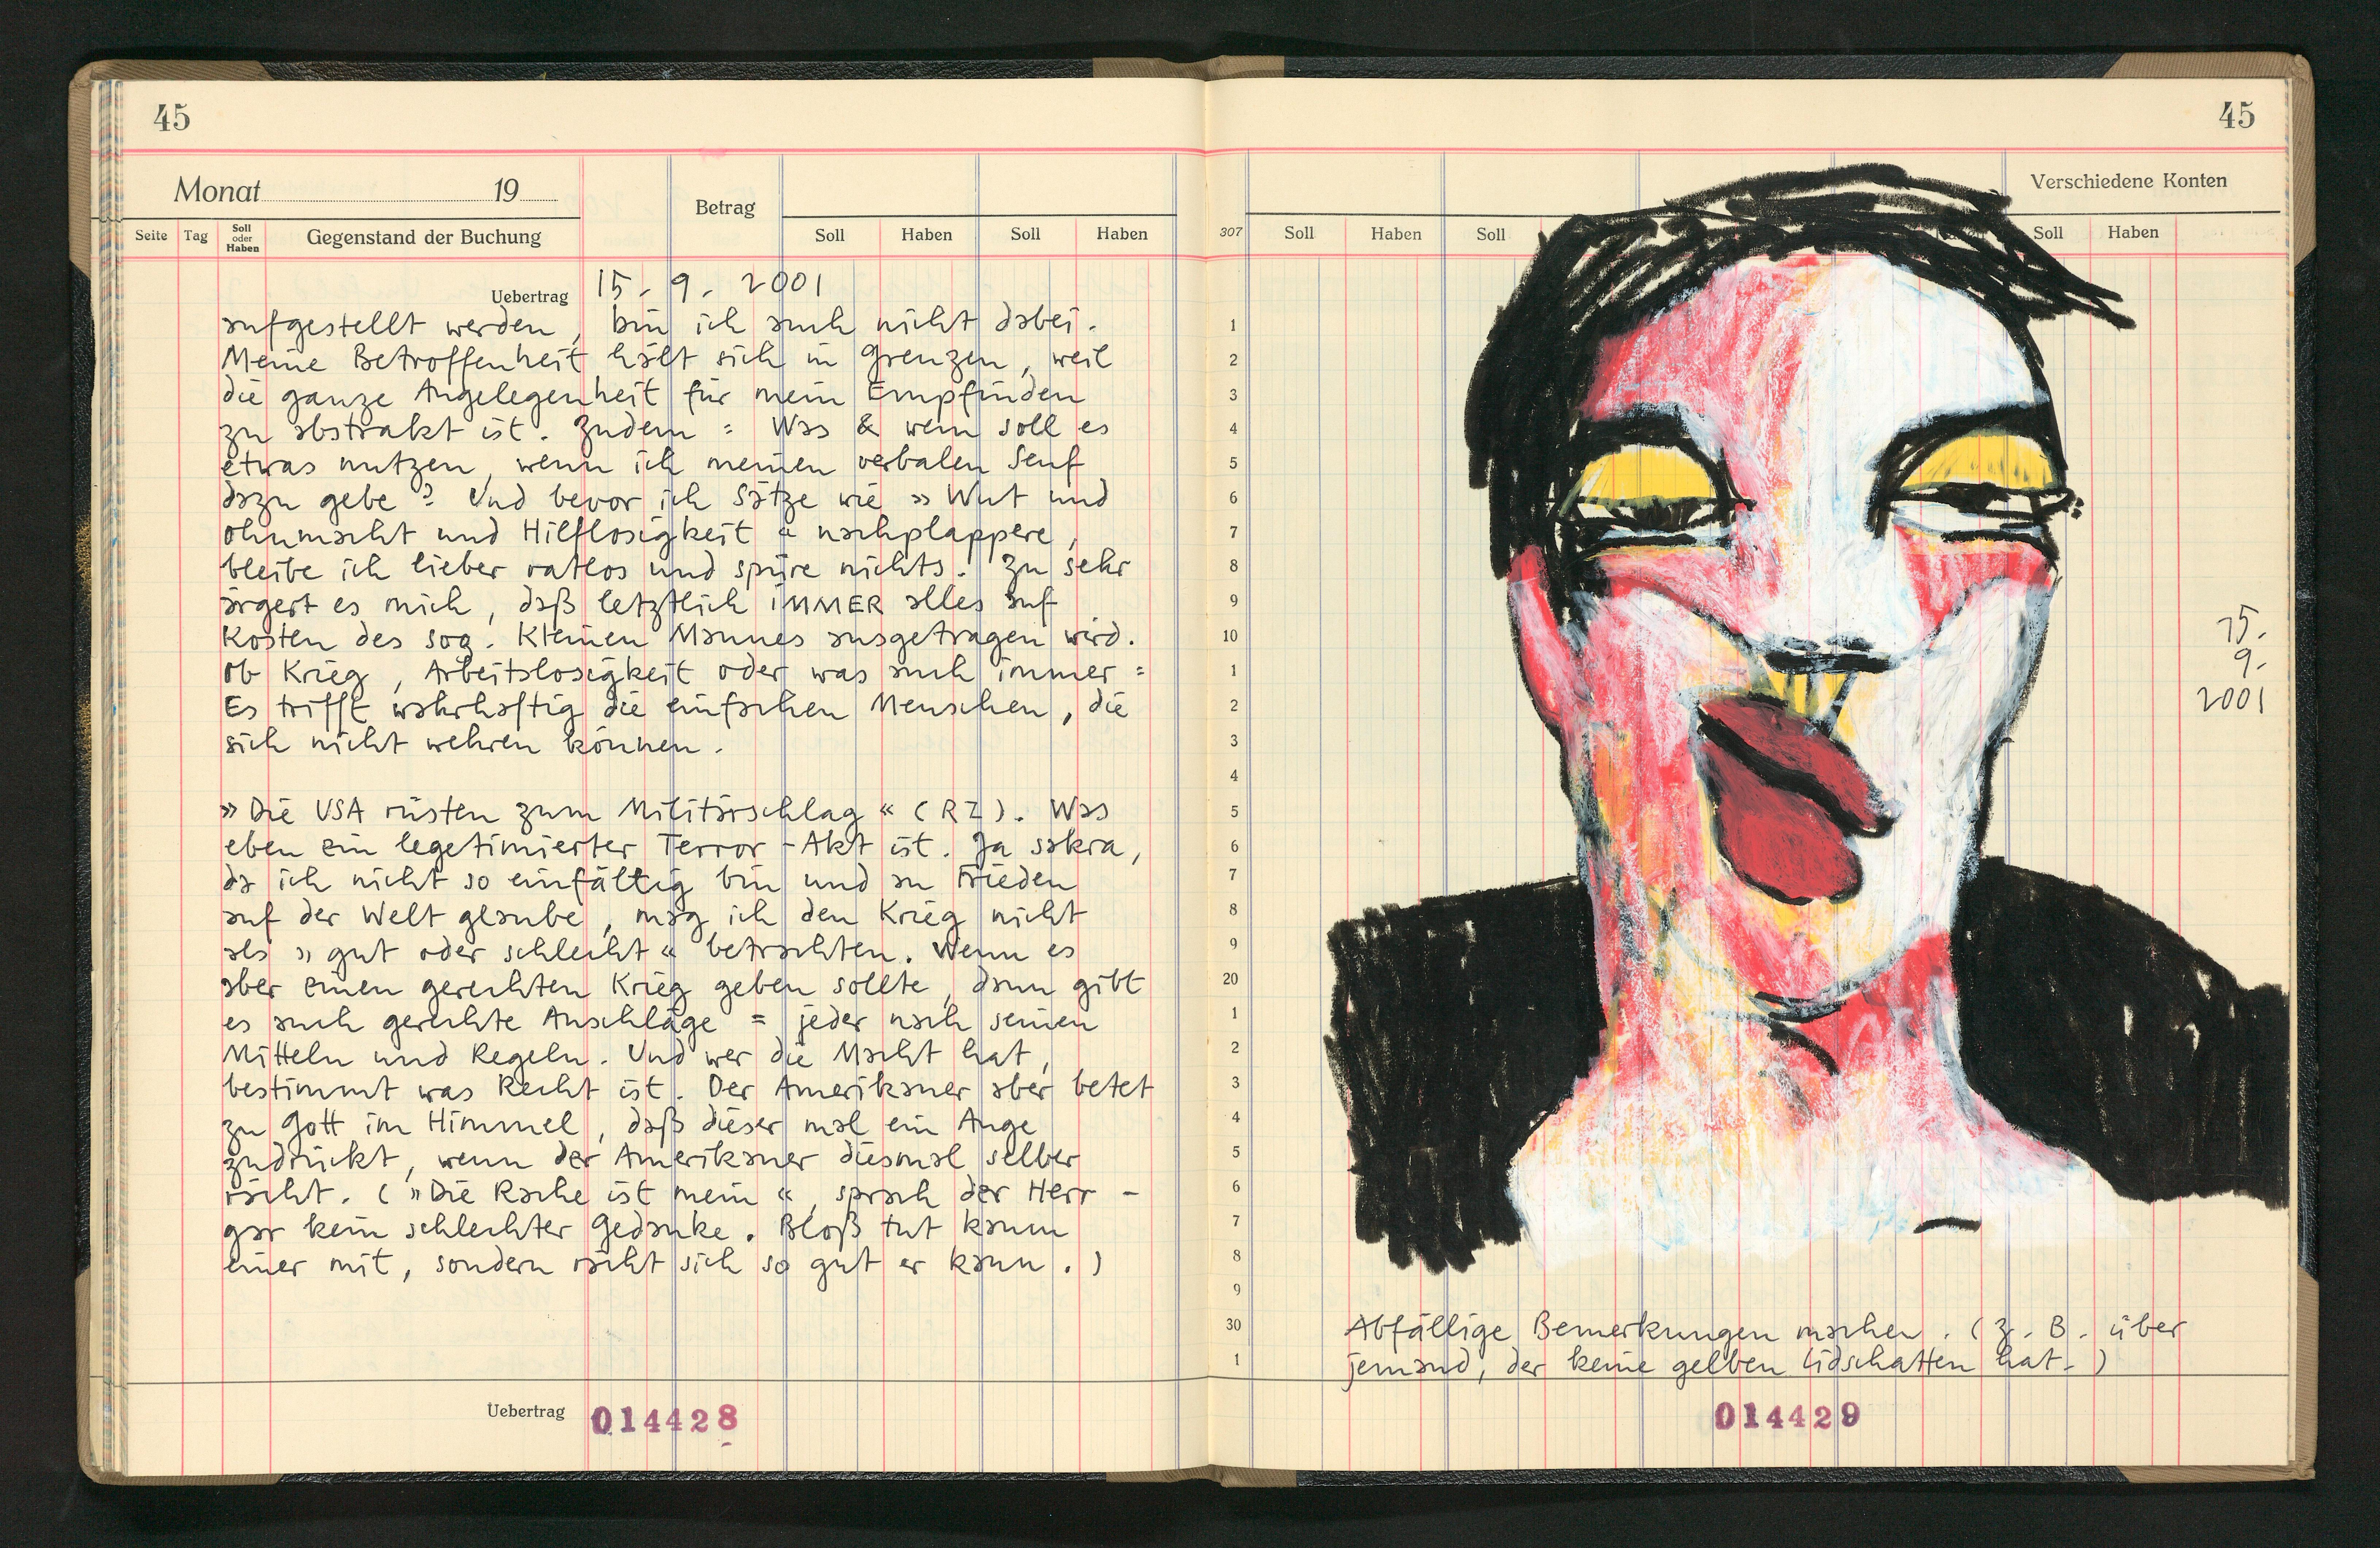 45
Monat 19
Betrag
Seite Tag Soll oder Haben Gegenstand der Buchung Soll Haben Soll Haben
Uebertrag 15. 9. 2001
aufgestellt werden, bin ich auch nicht dabei.
Meine Betroffenheit hält sich in Grenzen, weil
die ganze Angelegenheit für mein Empfinden
zu abstrakt ist. Zudem: Was & wem soll es
etwas nutzen, wenn ich meinen verbalen Senf
dazu gebe? Und bevor ich Sätze wie »Wut und
Ohnmacht und Hilflosigkeit« nachplappere,
bleibe ich lieber ratlos und spüre nichts. Zu sehr
ärgert es mich, daß letztlich IMMER alles auf
Kosten des sog. Kleinen Mannes ausgetragen wird.
Ob Krieg, Arbeitslosigkeit oder was auch immer:
Es trifft wahrhaftig die einfachen Menschen, die
sich nicht wehren können.
»Die USA rüsten zum Militärschlag« (RZ). Was
eben ein legetimierter Terror-Akt ist. Ja sakra,
da ich nicht so einfältig bin und an Frieden
auf der Welt glaube, mag ich den Krieg nicht
als »gut oder schlecht« betrachten. Wenn es
aber einen gerechten Krieg geben sollte, dann gibt
es auch gerechte Anschläge = jeder nach seinen
Mitteln und Regeln. Und wer die Macht hat,
bestimmt was Recht ist. Der Amerikaner aber betet
zu Gott im Himmel, daß dieser mal ein Auge
zudrückt, wenn der Amerikaner diesmal selber
rächt. (»Die Rache ist mein«, sprach der Herr -
gar kein schlechter Gedanke. Bloß tut kaum
einer mit, sondern rächt sich so gut er kann.)
Uebertrag 014428
45
Verschiedene Konten
307 Soll Haben Soll Soll Haben
1
2
3
4
5
6
7
8
9
10
1
2
3
4
5
6
7
8
9
20
1
2
3
4
5
6
7
8
9
30
1
15.
9.
2001
Abfällige Bemerkungen machen. (z. B. über
jemand, der keine gelben Lidschatten hat.)
014429